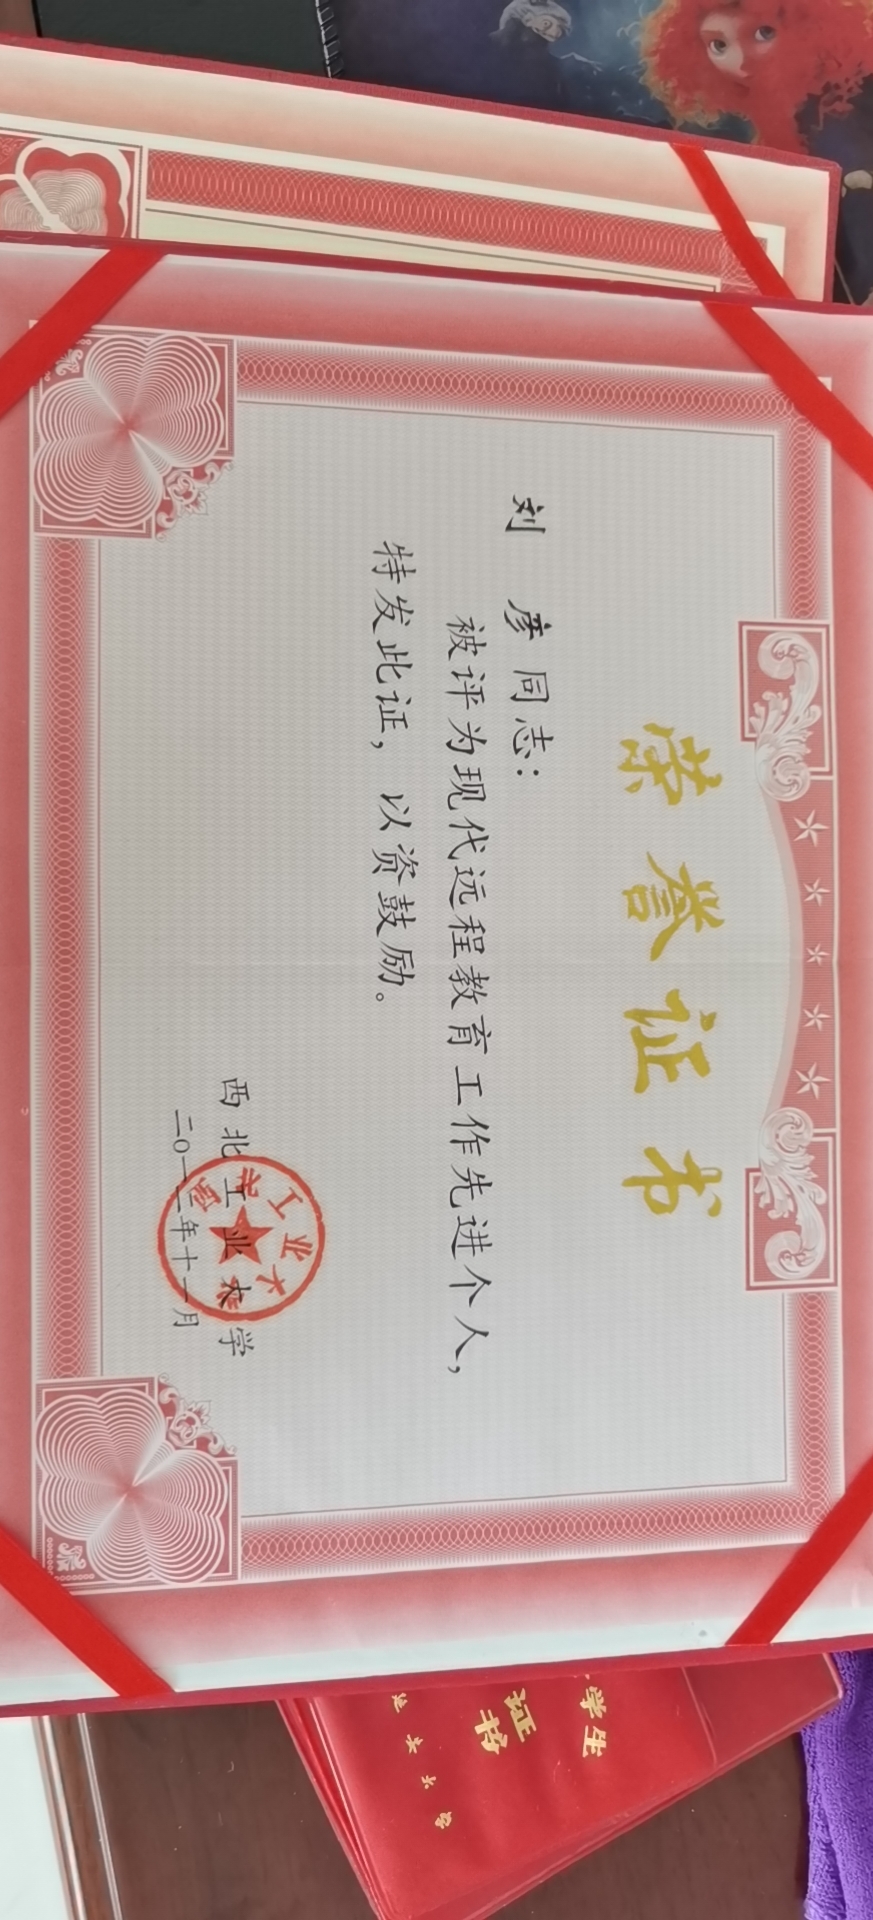 荣誉证书
刘彦同志：
被评为现代远程教育工作先进个人，
特发此证，以资鼓励。
西北工业大学
二〇一二年十一月
西北工业大学
学生
证书
延安大学